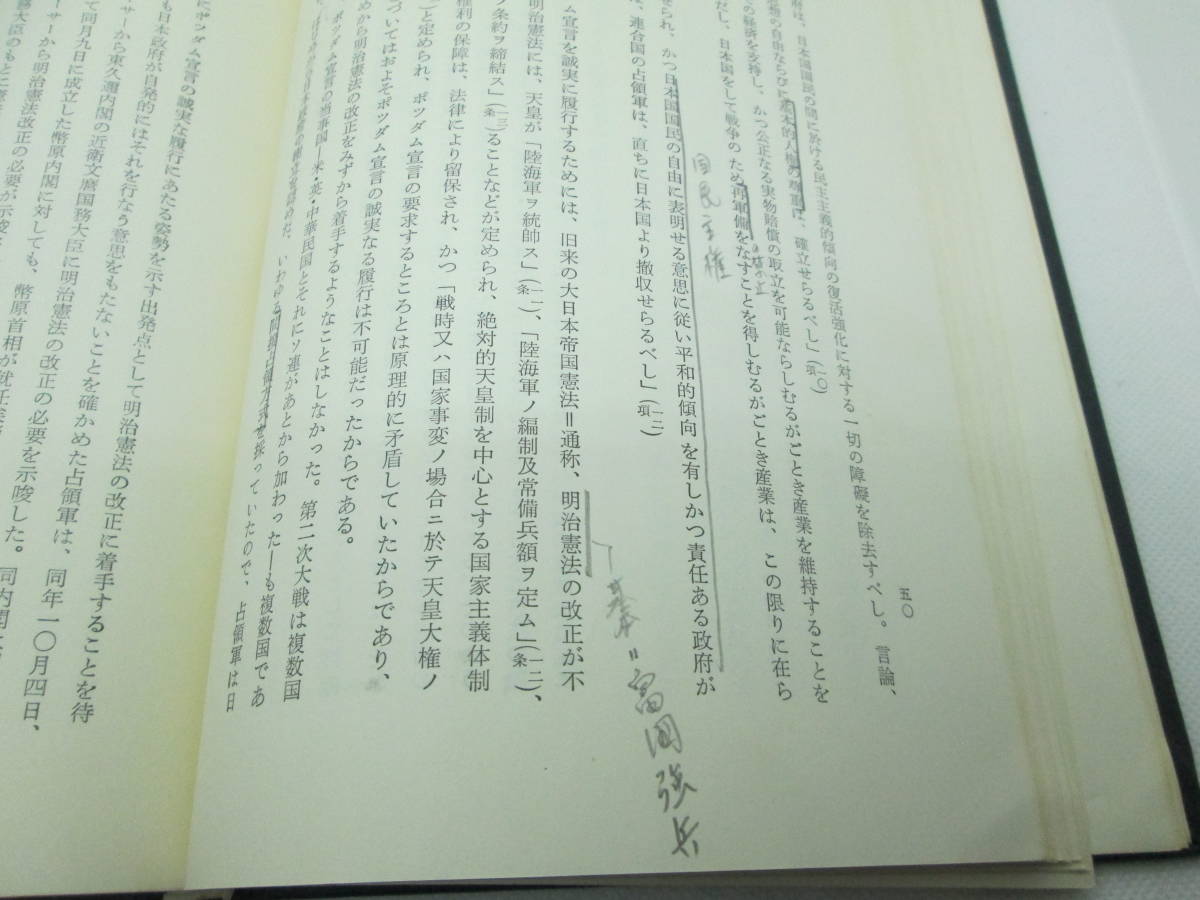 五〇
府は、日本国国民の間に於ける民主主義的傾向の復活強化に対する一切の障礙を除去すべし。言論、
想の自由ならびに基本的人権の尊重は、確立せらるべし」(一〇項)
の経済を支持し、かつ公正なる実物賠償の取立を可能ならしむるがごとき産業を維持することを
だし、日本国をして戦争のため再軍備をなすことを得しむるがごとき産業は、この限りに在ら
国民主権
せられ、かつ日本国国民の自由に表明せる意思に従い平和的傾向を有しかつ責任ある政府が
は、連合国の占領軍は、直ちに日本国より撤収せらるべし」(一二項)
ム宣言を誠実に履行するためには、旧来の大日本帝国憲法=通称、明治憲法の改正が不
基本=富国強兵
明治憲法には、天皇が「陸海軍ヲ統帥ス」(一一条)、「陸海軍ノ編制及常備兵額ヲ定ム」(一二条)、
ノ条約ヲ締結ス」(一三条)ることなどが定められ、絶対的天皇制を中心とする国家主義体制
権利の保障は、法律により留保され、かつ「戦時又ハ国家事変ノ場合ニ於テ天皇大権ノ
と定められ、ポツダム宣言の要求するところとは原理的に矛盾していたからであり、
づいてはおよそポツダム宣言の誠実なる履行は不可能だったからである。
めから明治憲法の改正をみずから着手するようなことはしなかった。第二次大戦は複数国
、ポツダム宣言の当事国―米・英・中華民国とそれにソ連があとから加わった―も複数国であ
いわゆる間接占領方式を採っていたので、占領軍は日
にポツダム宣言の誠実な履行にあたる姿勢を示す出発点として明治憲法の改正に着手することを待
も日本政府が自発的にはそれを行なう意思をもたないことを確かめた占領軍は、同年一〇月四日、
サーから東久邇内閣の近衛文麿国務大臣に明治憲法の改正の必要を示唆した。同内閣
て同月九日に成立した幣原内閣に対しても、幣原首相が就任
ーサーから明治憲法改正の必要が示唆
務大臣のもとに憲法